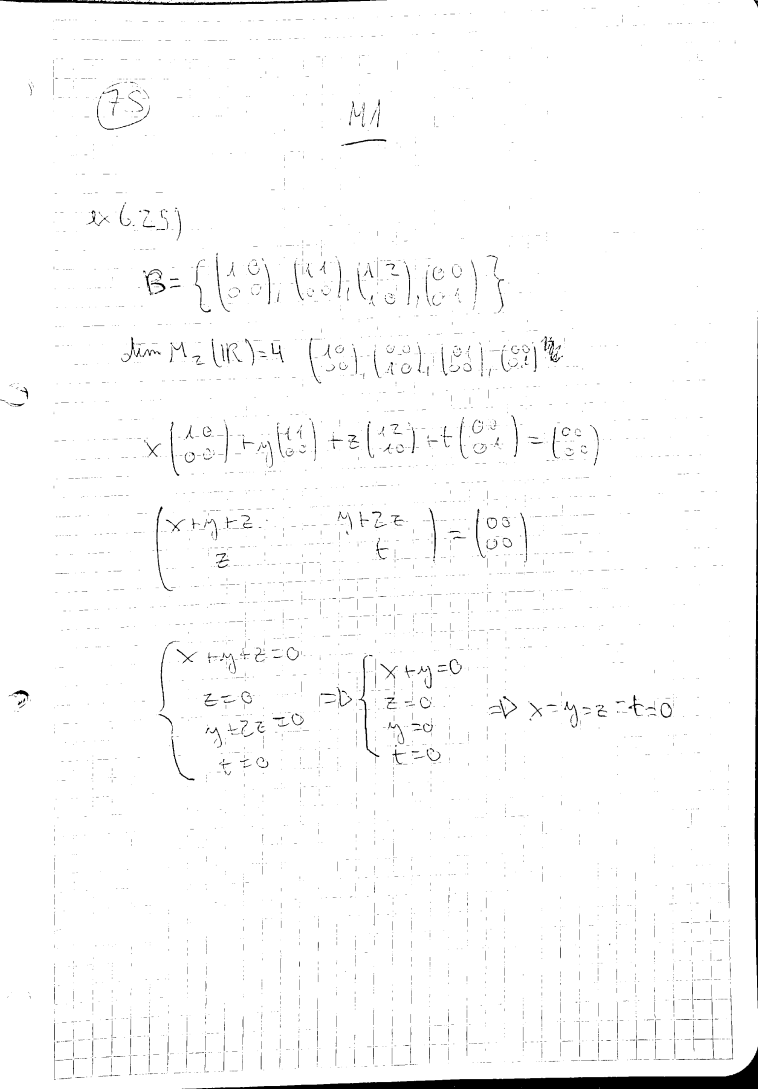 7S
M1
ex 6.25)
B = { (1 0 / 0 0), (1 1 / 0 0), (1 2 / 1 0), (0 0 / 0 1) }
dim M₂(ℝ) = 4 (1 0 / 0 0), (0 0 / 1 0), (0 1 / 0 0), (0 0 / 0 1)
x (1 0 / 0 0) + y (1 1 / 0 0) + z (1 2 / 1 0) + t (0 0 / 0 1) = (0 0 / 0 0)
(x+y+z y+2z / z t) = (0 0 / 0 0)
{ x+y+z=0 / z=0 / y+2z=0 / t=0 => { x+y=0 / z=0 / y=0 / t=0 => x=y=z=t=0